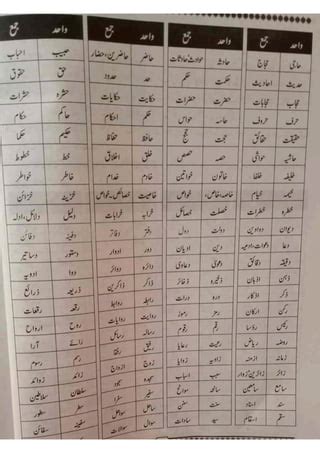 واحد جمع واحد جمع واحد جمع واحد جمع
حاجی حجاج حادثہ حوادث،حادثات حاضر حاضرین،حضار حبیب احباب
حدیث احادیث حکمت حکم حد حدود حق حقوق
حجاب حجابات حضرت حضرات حکایت حکایات حشرہ حشرات
حرف حروف حاسہ حواس حکم احکام حاکم حکام
حقیقت حقائق حجت حجج حافظ حفاظ حکیم حکما
حاشیہ حواشی حصہ حصص خلق اخلاق خط خطوط
خلیفہ خلفا خاتون خواتین خادم خدام خاطر خواطر
خیمہ خیام خاصہ خواص خاصیت خصائص،خواص خزینہ خزائن
خطرہ خطرات خصلت خصائل خرابہ خرابات دلیل دلائل،ادلہ
دیوان دواوین دولت دول دفتر دفاتر دفینہ دفائن
دعا دعوات،ادعیہ دین ادیان دور ادوار دستور دساتیر
دقیقہ دقائق دعویٰ دعاوی دائرہ دوائر دوا ادویہ
ذہن اذہان ذخیرہ ذخائر ذاکر ذاکرین ذریعہ ذرائع
ذکر اذکار ذرہ ذرات رابطہ روابط رقعہ رقعات
رکن ارکان رمز رموز روایت روایات روح ارواح
رئیس رؤسا رقم رقوم رسالہ رسائل رائے آرا
روضہ ریاض رعیت رعایا رفیق رفقا رسم رسوم
زمانہ ازمنہ زاویہ زوایا زوج ازواج زائد زوائد
زائر زائرین،زوار سبب اسباب سجدہ سجود سلطان سلاطین
سامع سامعین سانحہ سوانح سفیر سفرا سطر سطور
سند اسناد سنت سنن ساحل سواحل سفینہ سفائن
سقم اسقام سید سادات سوال سوالات